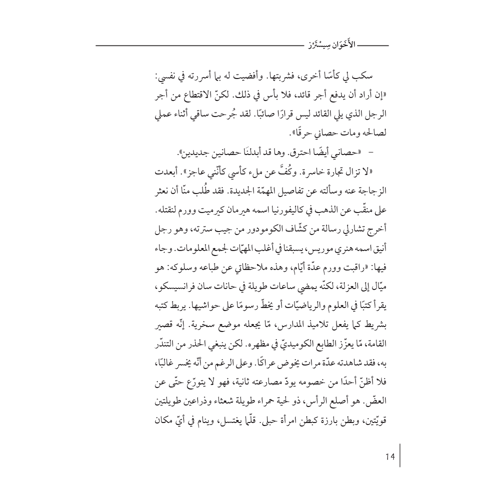 الأَخَوَان سِيسْتَرْز
سكب لي كأسًا أخرى، فشربتها. وأفضيت له بما أسررته في نفسي:
«إن أراد أن يدفع أجر قائد، فلا بأس في ذلك. لكنّ الاقتطاع من أجر
الرجل الذي يلي القائد ليس قرارًا صائبًا. لقد جُرحت ساقي أثناء عملي
لصالحه ومات حصاني حرقًا».
– «حصاني أيضًا احترق. وها قد أبدلنَا حصانين جديدين».
«لا تزال تجارة خاسرة. وكُفَّ عن ملء كأسي كأنّني عاجز». أبعدت
الزجاجة عنه وسألته عن تفاصيل المهمّة الجديدة. فقد طُلب منّا أن نعثر
على منقّب عن الذهب في كاليفورنيا اسمه هيرمان كيرميت وورم لنقتله.
أخرج تشارلي رسالة من كشّاف الكومودور من جيب سترته، وهو رجل
أنيق اسمه هنري موريس، يسبقنا في أغلب المهمّات لجمع المعلومات. وجاء
فيها: «راقبت وورم عدّة أيّام، وهذه ملاحظاتي عن طباعه وسلوكه: هو
ميّال إلى العزلة، لكنّه يمضي ساعات طويلة في حانات سان فرانسيسكو،
يقرأ كتبًا في العلوم والرياضيّات أو يخطّ رسومًا على حواشيها. يربط كتبه
بشريط كما يفعل تلاميذ المدارس، مّا يجعله موضع سخرية. إنّه قصير
القامة، مّا يعزّز الطابع الكوميديّ في مظهره». لكن ينبغي الحذر من التندّر
به، فقد شاهدته عدّة مرات يخوض عراكًا. وعلى الرغم من أنّه يخسر غالبًا،
فلا أظنّ أحدًا من خصومه يودّ مصارعته ثانية، فهو لا يتورّع حتّى عن
العضّ. هو أصلع الرأس، ذو لحية حمراء طويلة شعثاء وذراعين طويلتين
قويّتين، وبطن بارزة كبطن امرأة حبلى. قلّما يغتسل، وينام في أيّ مكان
14